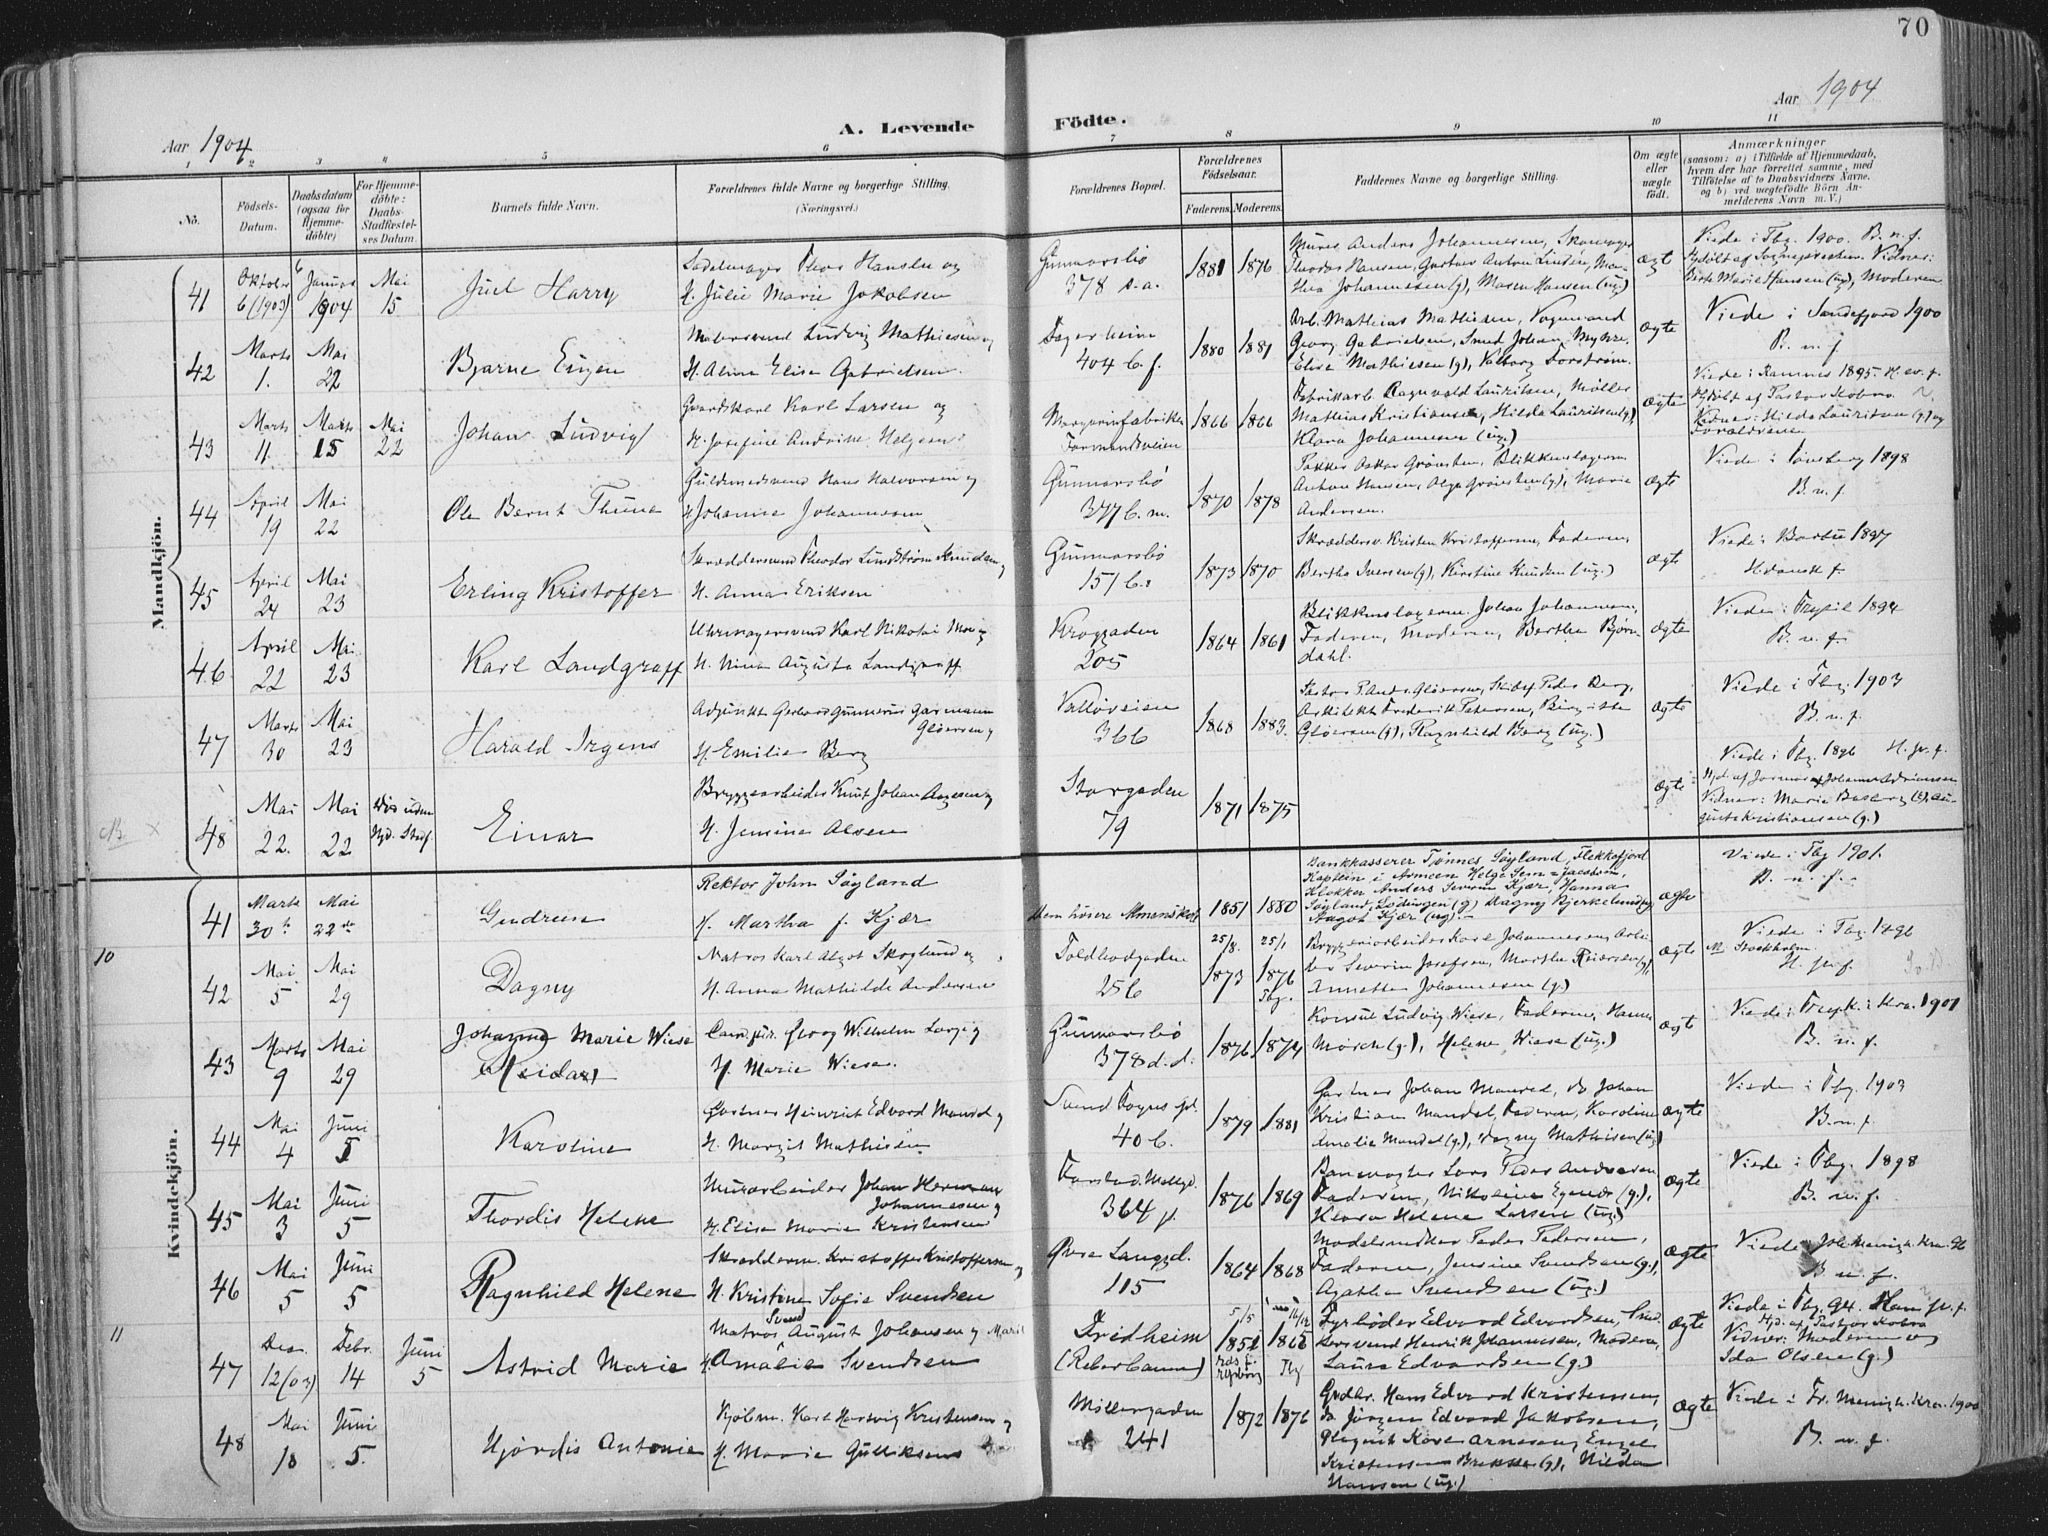 70
Aar 1904
A. Levende Födte.
Aar 1904
1 2 3 4 5 6 7 8 9 10 11
No.
Födsels-
Datum.
Daabsdatum
(ogsaa for
Hjemme-
döbte)
For Hjemme-
döbte:
Daabs-
Stadfæstel-
ses Datum.
Barnets fulde Navn.
Forældrenes fulde Navne og borgerlige Stilling.
(Næringsvei.)
Forældrenes Bopæl.
Forældrenes
Födselsaar.
Faderens. Moderens.
Faddernes Navne og borgerlige Stilling.
Om ægte
eller
uægte
født.
Anmærkninger
(saasom: a) i Tilfælde af Hjemmedaab,
hvem der har forrettet samme, med
Tilföielse af to Daabsvidners Navne,
og b) ved uægtefödte Börn An-
melderens Navn m. V.)
Mandkjön.
41
Oktober
6 (1903)
6 Januar
1904
Mai
15
Juel Harry
Sadelmager Thor Hansen og
H. Julie Marie Jakobsen
Gunnarsbö
378 s.a.
1881 1876
Murer Anders Johannesen, Skomager
Theodor Hansen, Gustav Anton Lindin, Ma-
thea Johannesen (g), Maren Hansen (ug.)
ægt
Viede i Tbg. 1900. B. n. f.
Moderen
42
Marts
1.
Mai
22
Bjarne Eugen
Malersvend Ludvig Mathiesen og
H. Alma Elise Gabrielsen.
Fagerheim
404 b. f.
1880 1881
Arb. Mathias Mathiesen, Vognmand
Georg Gabrielsen, Smed Johan Myhre,
Elise Mathiesen (g), Valborg
ægte
Viede i Sandefjord 1900
B. n. f.
43
Marts
11.
Marts
15
Mai
22
Johan Ludvig
Gaardskarl Karl Larsen og
H. Josefine Andrine Helgesen
Margarinfabriken
Farmandsveien
1866 1866
Fabrikarb. Ragnvald Lauritsen, Møller
Mathias Kristiansen, Hilda Lauritsen (g),
Klara Johannesen (ug.)
ægte
Viede i Ramnes 1895
Hjdöbt af Pastor Kobro.
Vidner: Hilda Lauritsen (g) og
Forældrene
44
April
19
Mai
22
Ole Bernt Thune
Guldsmedsvend Hans Halvorsen og
H. Johanne Johannesen
Gunnarsbö
377 b. m.
1870 1878
Pakker Oskar Grønsten, Blikkenslagerm.
Anton Hansen, Olga Grønsten (g), Marie
Andersen.
ægt
Viede i Tønsberg 1898
B. n. f.
45
April
24
Mai
23
Erling Kristoffer
Skræddersvend Theodor Lindstrøm Knudsen og
H. Anna Eriksen
Gunnarsbö
151 b.
1873 1870
Skræddersv. Kristen Kristoffersen, Faderen,
Bertha Iversen (g), Kirstine Knudsen (ug.)
ægt
Viede i Barbu 1897
46
April
22
Mai
23
Karl Landgraff
Uhrmagersvend Karl Nikolai Moe og
H. Nina Augusta Landgraff
Kroggaden
205
1864 1861
Blikkenslagerm. Johan Johannesen,
Faderen, Moderen, Berthe Bjørn-
dahl.
ægte
Viede i Trysil 1894
B. n. f.
47
Marts
30
Mai
23
Harald Irgens
Adjunkt Gerhard Gunnerus Garmann
Gløersen og
H. Emilie Berg
Valløveien
366
1868 1883.
Arkitekt Frederik Petersen,
Gløersen (g), Ragnhild Berg (ug.)
ægte
Viede i Tbg. 1903
B. n. f.
48
Mai
22.
Mai
22
Einar
Bryggearbeider Knut Johan Aagesen og
H. Jensine Olsen
Storgaden
79
1871 1875
ægte
Viede i Tbg. 1896 H. pr. f.
Kvindekjön.
41
Marts
30te
Mai
22de
Gudrun
Rektor John Søyland
H. Martha f. Kjær
Den höiere Almenskole
1851 1880
Bankkasserer Tønnes Søyland, Flekkefjord
Kaptein i Armeen Helge Sem-Jacobsen,
Klokker Anders Severin Kjær, Hanna
Søyland, Lødingen (g) Dagny Bjerkelund (g)
Aagot Kjær (ug)
ægte
Viede i Tbg 1901.
B. n. f.
10
42
Mai
5
Mai
29
Dagny
Matros Karl Algot Skoglund og
H. Anna Mathilde Andersen
Toldbodgaden
25 b
25/8. 25/1
1873 1876
Tbg.
Bryggeriarbeider Karl Johannesen, Arbei-
der Severin Josefsen, Marthe Reiersen (g),
Annette Johannesen (g)
ægte
Viede i Tbg. 1896
M Stockholm.
H. pr. f.
43
Marts
9
Mai
29
Johanne Marie Wiese
Reidar
Cand. jur. Georg Wilhelm Lorge og
H. Marie Wiese
Gunnarsbö
378 d. d.
1876 1874
Konsul Ludvig Wiese, Faderen, Hanna
Mørch (g.), Helene Wiese (ug.)
ægt
Viede i Frepk. i Kra. 1901
B. n. f.
44
Mai
4
Juni
5
Karoline
Gartner Heinrich Edvard Mandel og
H. Margit Mathisen
Svend Foyns gd.
40 b.
1879 1881
Gartner Johan Mandel, do Johan
Kristian Mandel, Faderen, Karoline
Amalie Mandel (g.), Dagny Mathisen (ug.)
ægte
Viede i Tbg. 1903
B. n. f.
45
Mai
3
Juni
5
Thordis Helene
Murarbeider Johan Herman
Johannesen og
H. Elise Marie Kristensen
Farstad. Møllegd.
364 p.
1876 1869
Banevogter Lars Peder Andersen,
Faderen, Nikoline Egenæs (g.),
Klara Helene Larsen (ug.)
ægte
Viede i Tbg. 1898
B. n. f.
46
Mai
5
Juni
5
Ragnhild Helene
Skrædderm. Kristoffer Kristoffersen og
H. Kristine Sofie Svendsen
Øvre Langgd.
115
1864 1868
Modelsnedker Peder Pedersen,
Faderen, Jensine Svendsen (g.),
Agathe Svendsen (ug.)
ægte
B. n. f.
11
47
Des.
12 (03)
Febr.
14
Juni
5
Astrid Marie
Matros Svend August Johansen og Marie
H. Amalie Svendsen
Fridheim
(Reberbanen)
5/5 16/12
1851 1865
Tbg
Fyrbøder Edvard Edvardsen, Snek-
kersvend Henrik Johannesen, Moderen,
Laura Edvardsen (g.)
ægte
Viede i Tbg. 94.
Hjd. af Pastor Kobro
Vidner: Moderen og
Ida Olsen (g.)
48
Mai
10
Juni
5.
Hjördis Antonie
Kjøbm. Karl Hartvig Kristensen og
H. Marie Gulliksen
Møllergaden
241
1872 1876
Gaardbr. Hans Edvard Kristensen,
do Jörgen Edvard Jakobsen,
Kristensen Brekke (g), Hilda
Hansen (ug.)
ægte
Viede i Fr. Menigh. Kra. 1900
B. n. f.